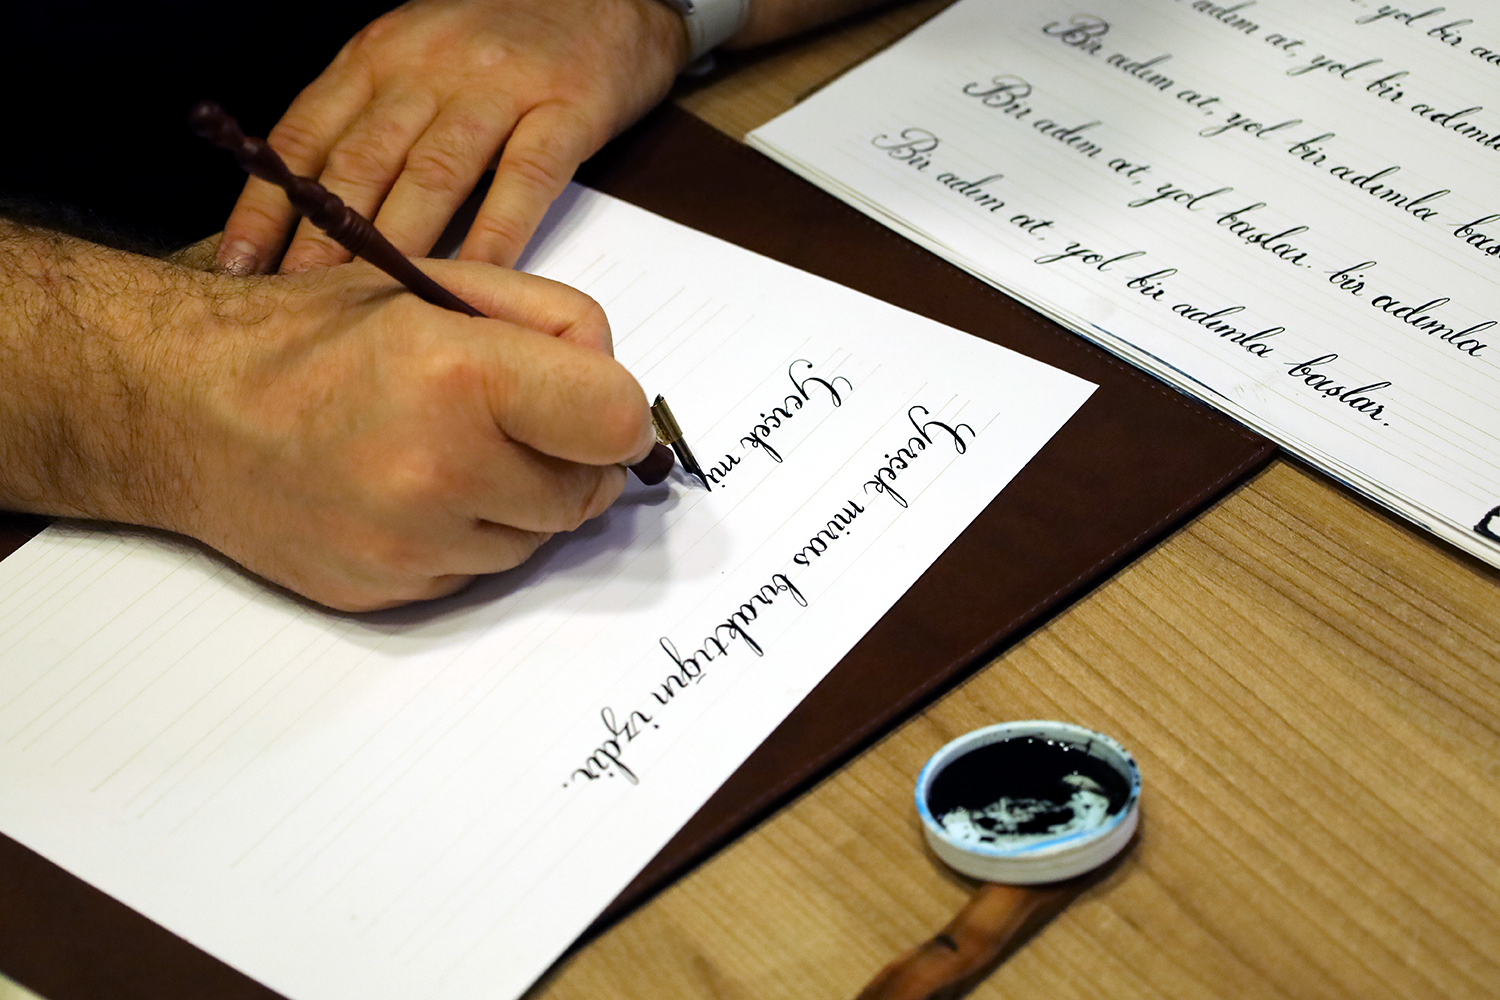 yol bir
adım at, yol bir
Bir adım at, yol bir adımla
Bir adım at, yol başlar. bir adımla
Bir adım at, yol bir adımla başlar.
Gerçek miras bıraktığın izdir.
Gerçek